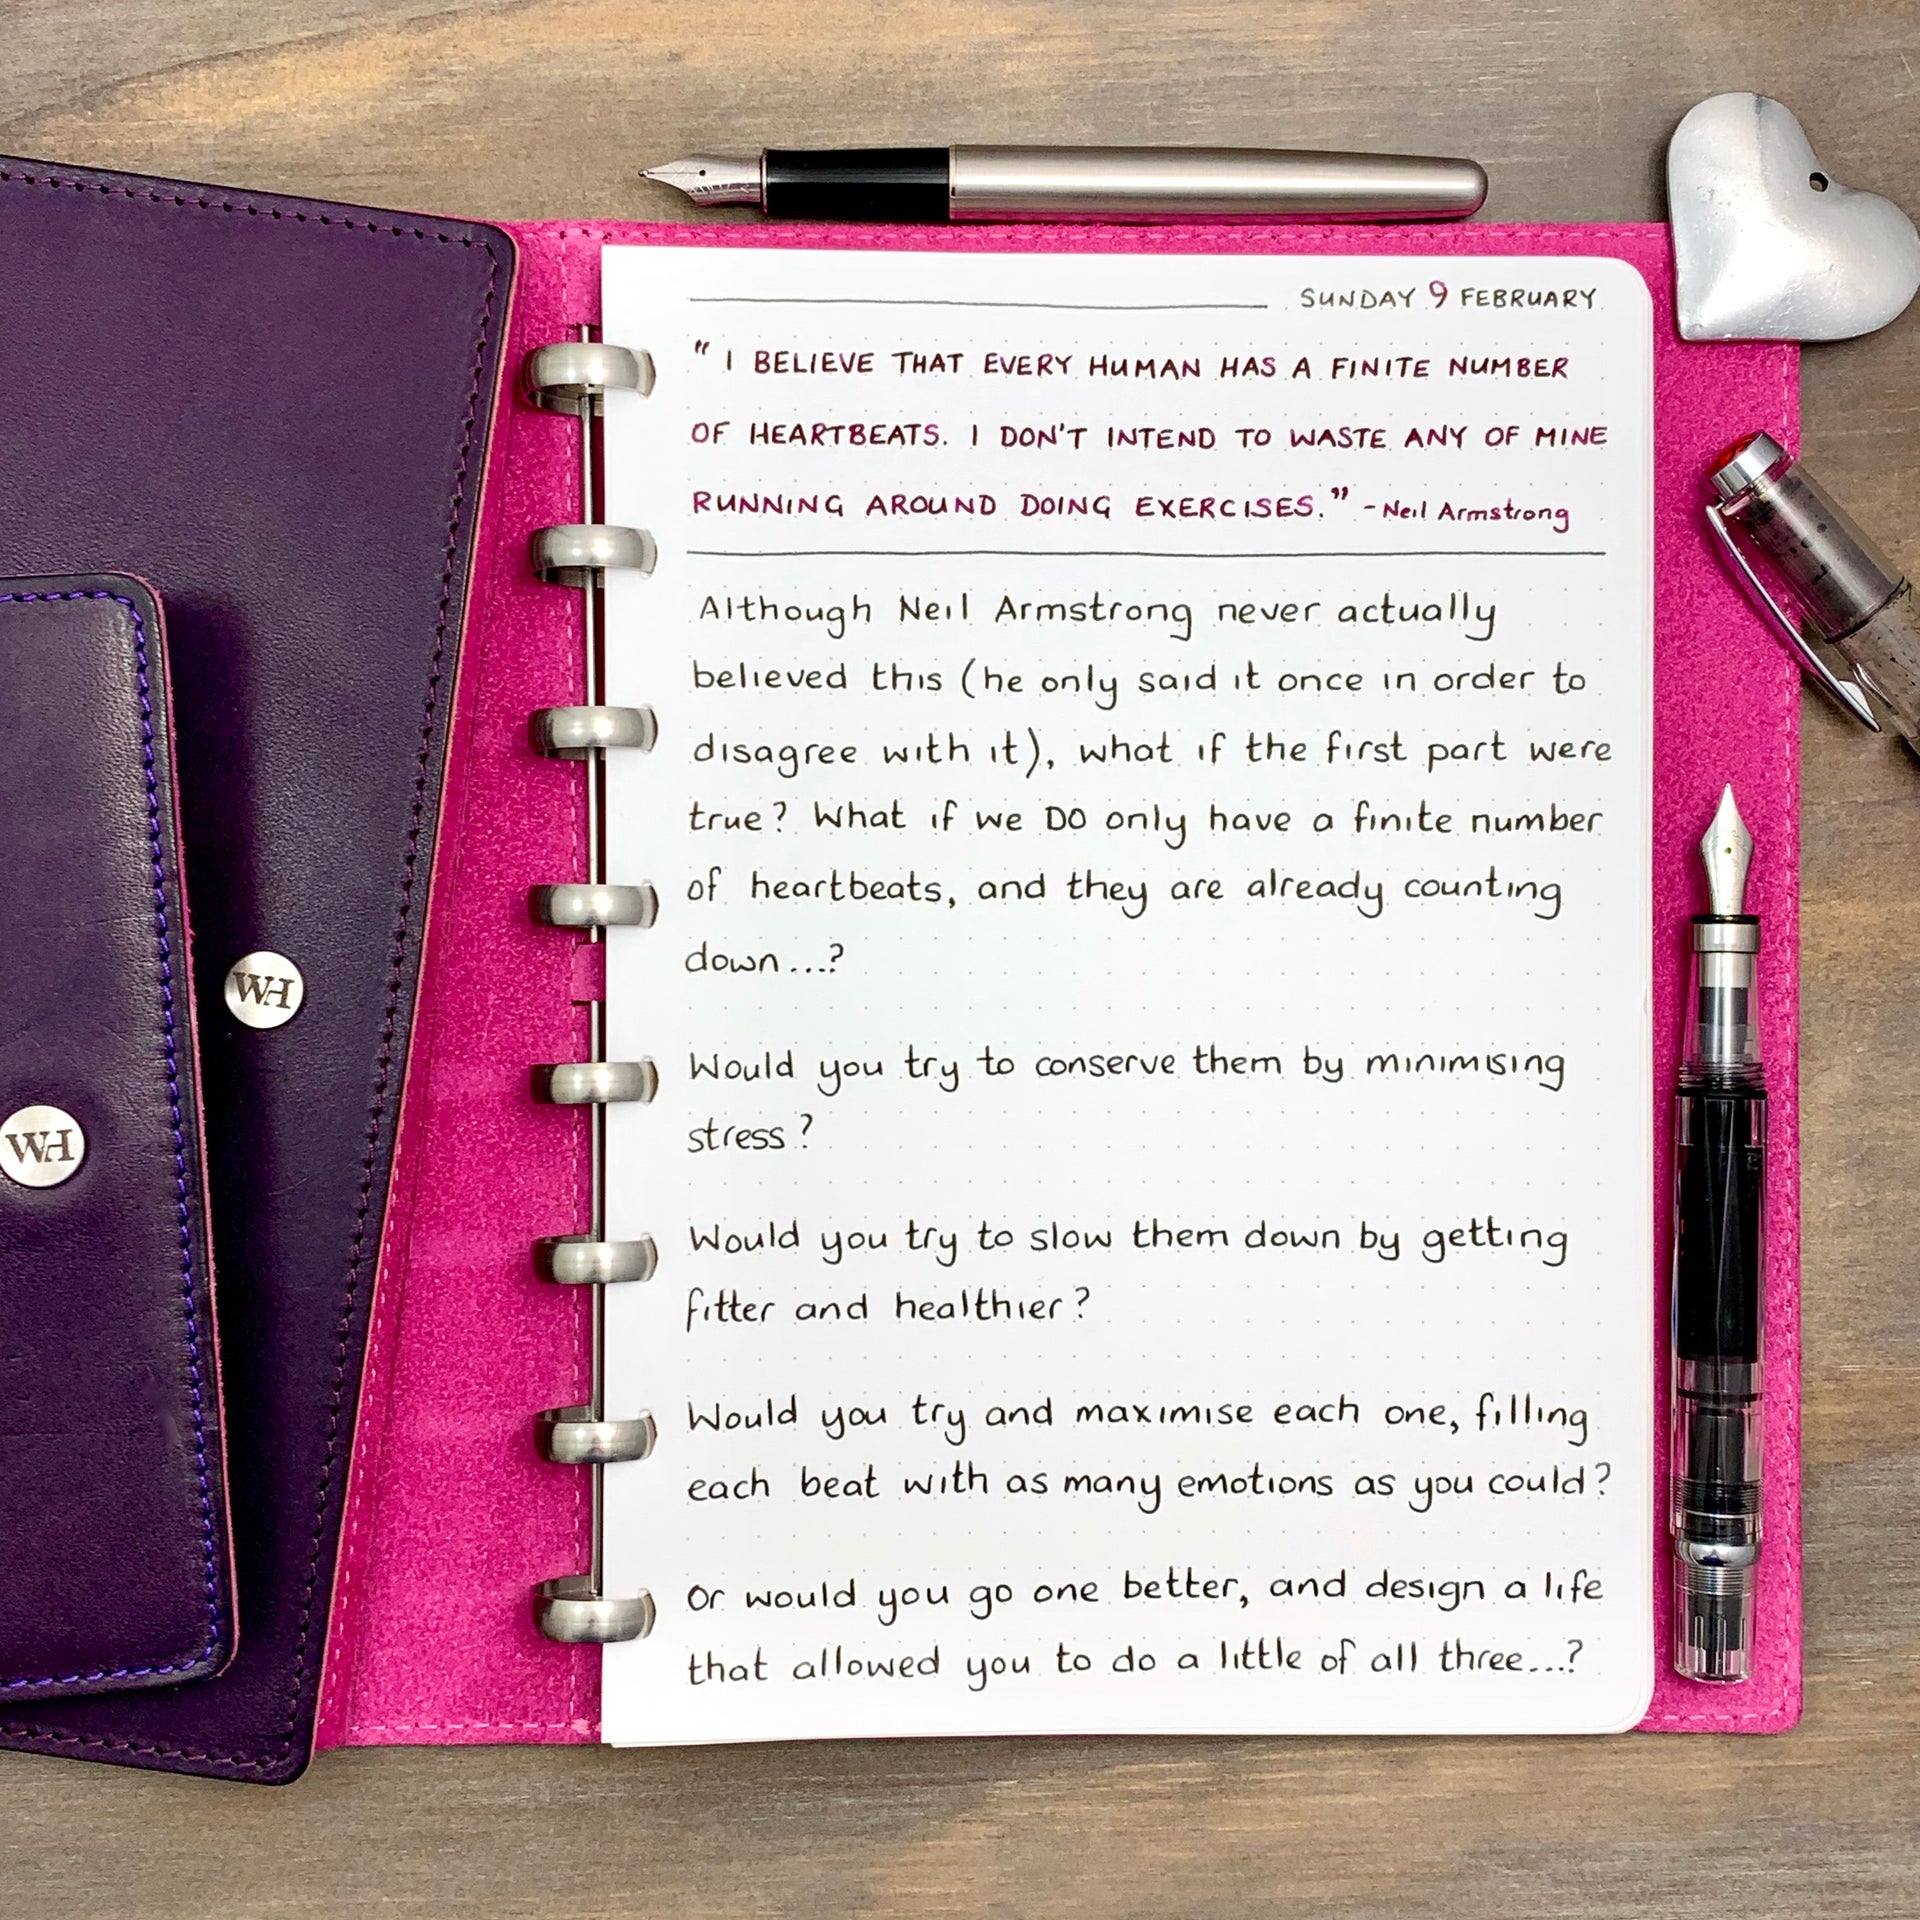 SUNDAY 9 FEBRUARY
" I BELIEVE THAT EVERY HUMAN HAS A FINITE NUMBER
OF HEARTBEATS. I DON'T INTEND TO WASTE ANY OF MINE
RUNNING AROUND DOING EXERCISES." - Neil Armstrong
Although Neil Armstrong never actually
believed this (he only said it once in order to
disagree with it), what if the first part were
true? What if we DO only have a finite number
of heartbeats, and they are already counting
down...?
Would you try to conserve them by minimising
stress?
Would you try to slow them down by getting
fitter and healthier?
Would you try and maximise each one, filling
each beat with as many emotions as you could?
Or would you go one better, and design a life
that allowed you to do a little of all three...?
WH
WH